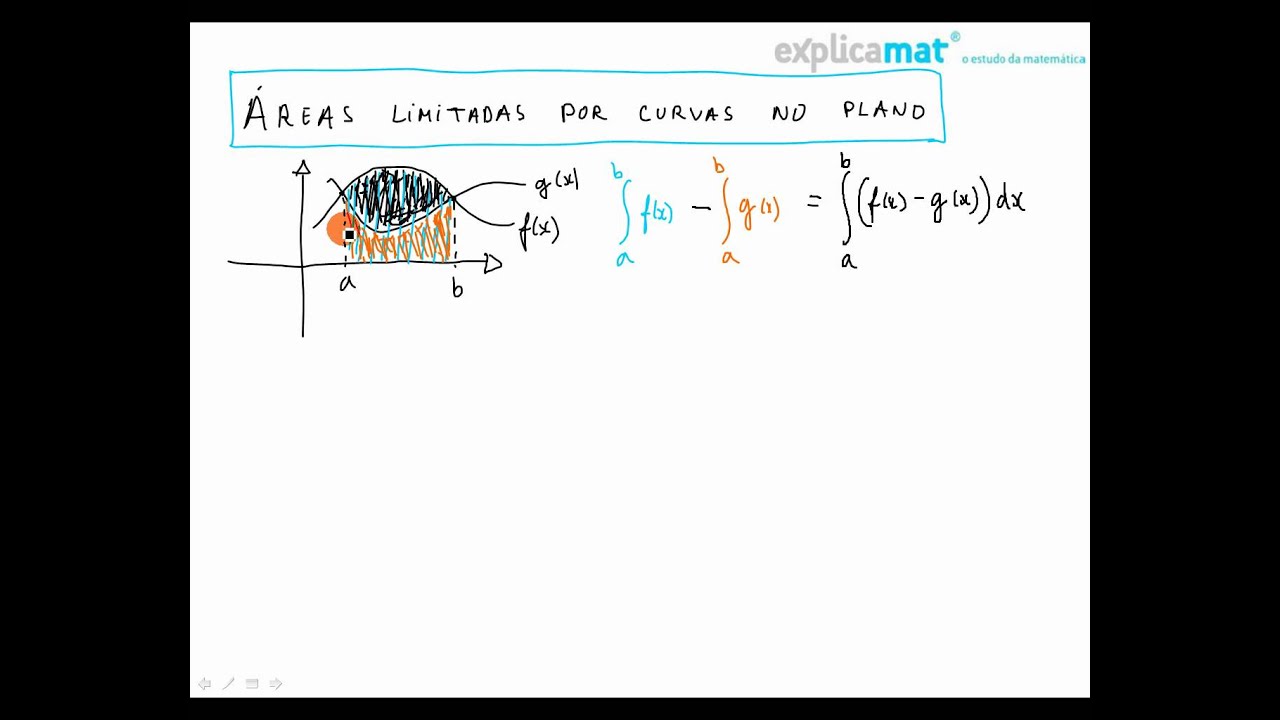 explicamat® o estudo da matemática
ÁREAS LIMITADAS POR CURVAS NO PLANO
g(x)
f(x)
a
b
∫ₐᵇ f(x) − ∫ₐᵇ g(x) = ∫ₐᵇ (f(x) − g(x)) dx